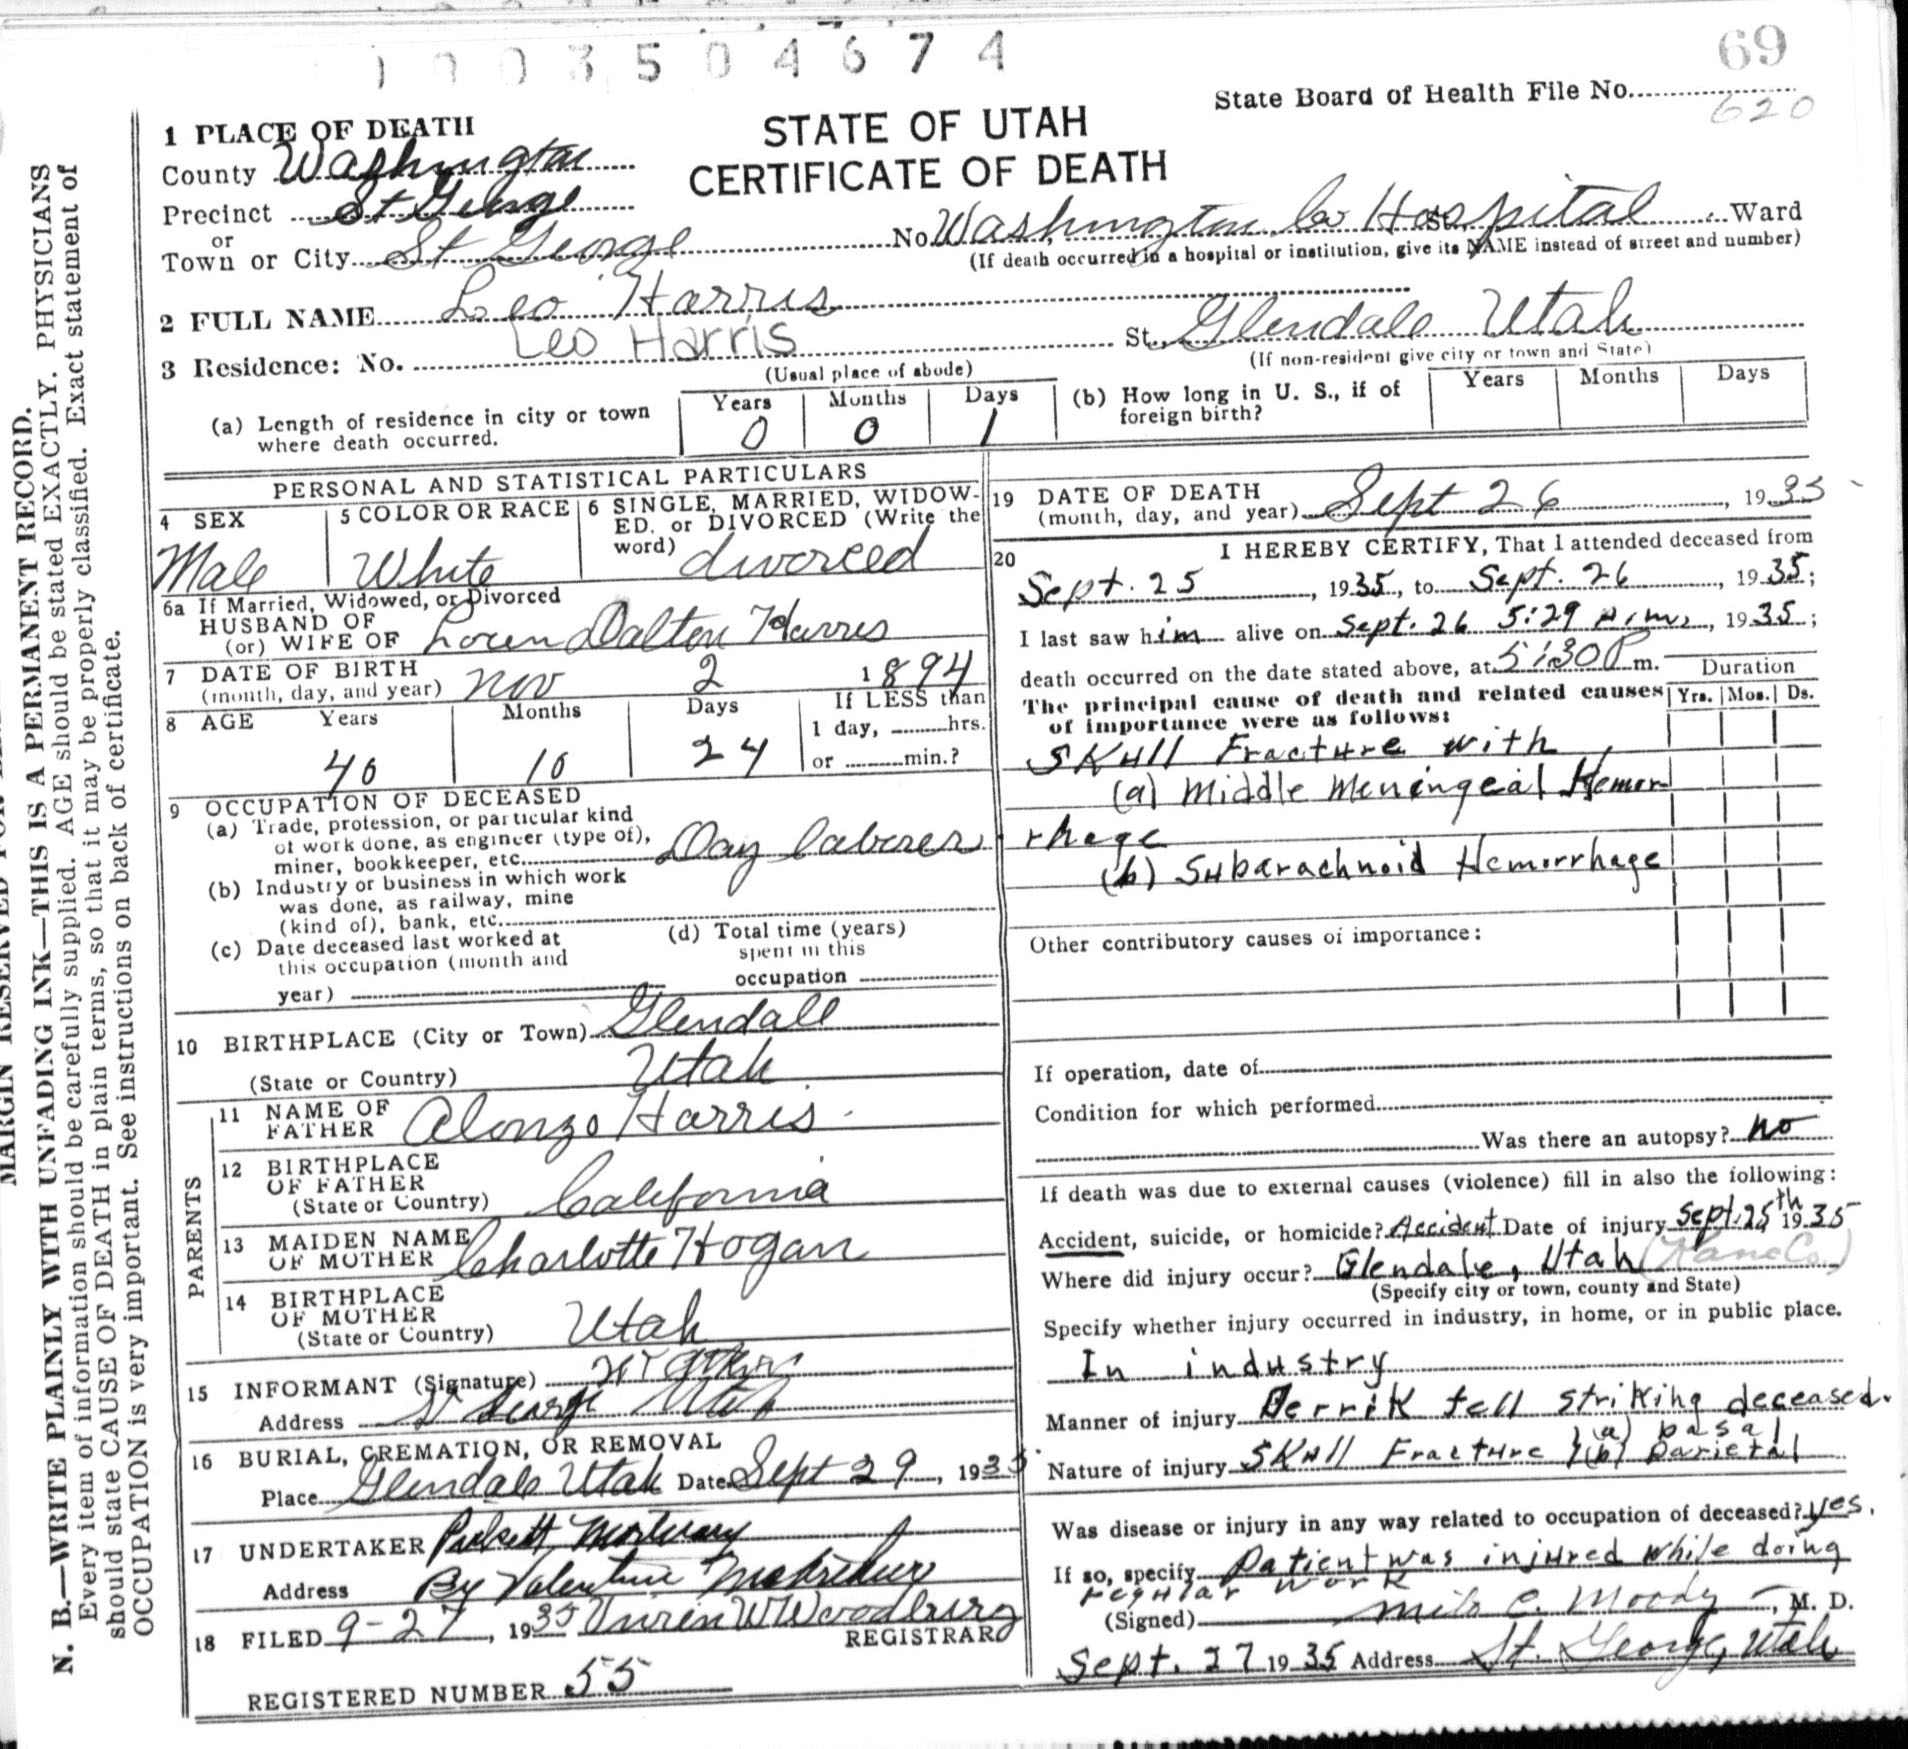 1 0 0 3 5 0 4 6 7 4
69
State Board of Health File No.
620
STATE OF UTAH
CERTIFICATE OF DEATH
1 PLACE OF DEATH
County Washington
Precinct St George
or
Town or City St George No. Washington Co Hospital St. Ward
(If death occurred in a hospital or institution, give its NAME instead of street and number)
2 FULL NAME Leo Harris
Leo Harris
3 Residence: No. St. Glendale Utah
(Usual place of abode) (If non-resident give city or town and State)
(a) Length of residence in city or town where death occurred. Years 0 Months 0 Days 1
(b) How long in U. S., if of foreign birth? Years Months Days
PERSONAL AND STATISTICAL PARTICULARS
4 SEX Male
5 COLOR OR RACE White
6 SINGLE, MARRIED, WIDOW-
ED, or DIVORCED (Write the
word) divorced
6a If Married, Widowed, or Divorced
HUSBAND OF
(or) WIFE OF Loren Dalton Harris
7 DATE OF BIRTH
(month, day, and year) Nov 2 1894
8 AGE Years Months Days If LESS than
1 day, hrs.
40 10 24 or min.?
9 OCCUPATION OF DECEASED
(a) Trade, profession, or particular kind
of work done, as engineer (type of),
miner, bookkeeper, etc. Day laborer
(b) Industry or business in which work
was done, as railway, mine
(kind of), bank, etc.
(c) Date deceased last worked at
this occupation (month and
year)
(d) Total time (years)
spent in this
occupation
10 BIRTHPLACE (City or Town) Glendale
(State or Country) Utah
PARENTS
11 NAME OF
FATHER Alonzo Harris
12 BIRTHPLACE
OF FATHER
(State or Country) California
13 MAIDEN NAME
OF MOTHER Charlotte Hogan
14 BIRTHPLACE
OF MOTHER
(State or Country) Utah
15 INFORMANT (Signature)
Address St George Utah
16 BURIAL, CREMATION, OR REMOVAL
Place Glendale Utah Date Sept 29, 1935
17 UNDERTAKER Pickett Mortuary
Address By Valentine
18 FILED 9-27, 1935 Woodbury
REGISTRAR
REGISTERED NUMBER 55
19 DATE OF DEATH
(month, day, and year) Sept 26, 1935
20 I HEREBY CERTIFY, That I attended deceased from
Sept. 25, 1935, to Sept. 26, 1935;
I last saw him alive on Sept. 26 5:29 P.m., 1935;
death occurred on the date stated above, at 5:30 P m.
Duration
The principal cause of death and related causes
of importance were as follows:
Yrs. Mos. Ds.
Skull Fracture with
(a) Middle Meningeal Hemor
rhage
(b) Subarachnoid Hemorrhage
Other contributory causes of importance:
If operation, date of
Condition for which performed
Was there an autopsy? no
If death was due to external causes (violence) fill in also the following:
Accident, suicide, or homicide? Accident Date of injury Sept. 25th 1935
Where did injury occur? Glendale, Utah (Kane Co.)
(Specify city or town, county and State)
Specify whether injury occurred in industry, in home, or in public place.
In industry
Manner of injury Derrik fell striking deceased.
Nature of injury Skull Fracture (a) basal (b) Parietal
Was disease or injury in any way related to occupation of deceased? yes.
If so, specify Patient was injured while doing
regular work
(Signed) C. Moody, M. D.
Sept. 27 1935 Address St. George, Utah
N. B.—WRITE PLAINLY WITH UNFADING INK—THIS IS A PERMANENT RECORD.
Every item of information should be carefully supplied. AGE should be stated EXACTLY. PHYSICIANS
should state CAUSE OF DEATH in plain terms, so that it may be properly classified. Exact statement of
OCCUPATION is very important. See instructions on back of certificate.
MARGIN RESERVED FOR